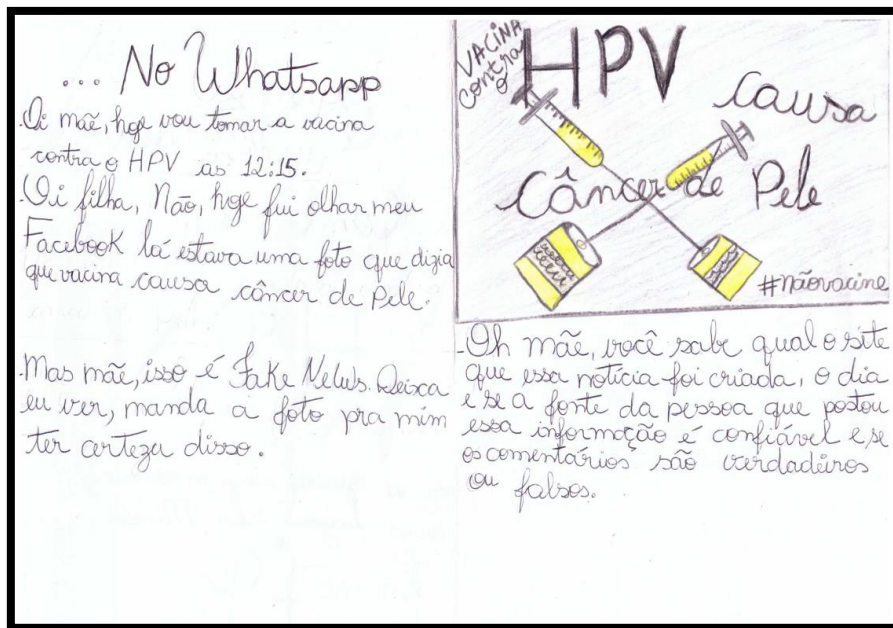 ... No Whatsapp
-Oi mãe, hoje vou tomar a vacina
contra o HPV as 12:15.
-Oi filha, Não, hoje fui olhar meu
Facebook lá estava uma foto que dizia
que vacina causa câncer de Pele.
-Mas mãe, isso é Fake News. Deixa
eu ver, manda a foto pra mim
ter certeza disso.
VACINA
contra
o
HPV
causa
Câncer de Pele
#nãovacine
-Oh mãe, você sabe qual o site
que essa notícia foi criada, o dia
e se a fonte da pessoa que postou
essa informação é confiável e se
os comentários são verdadeiros
ou falsos.